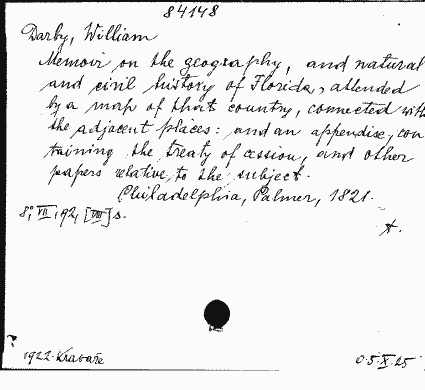 84148
Darby, William
Memoir on the geography, and natural
and civil history of Florida, attended
by a map of that country, connected with
the adjacent places: and an appendix, con
taining the treaty of cession, and other
papers relative to the subject.
Philadelphia, Palmer, 1821.
8°, VII, 92, [VIII] s.
A.
1922. Krabaře
0.5.X.25